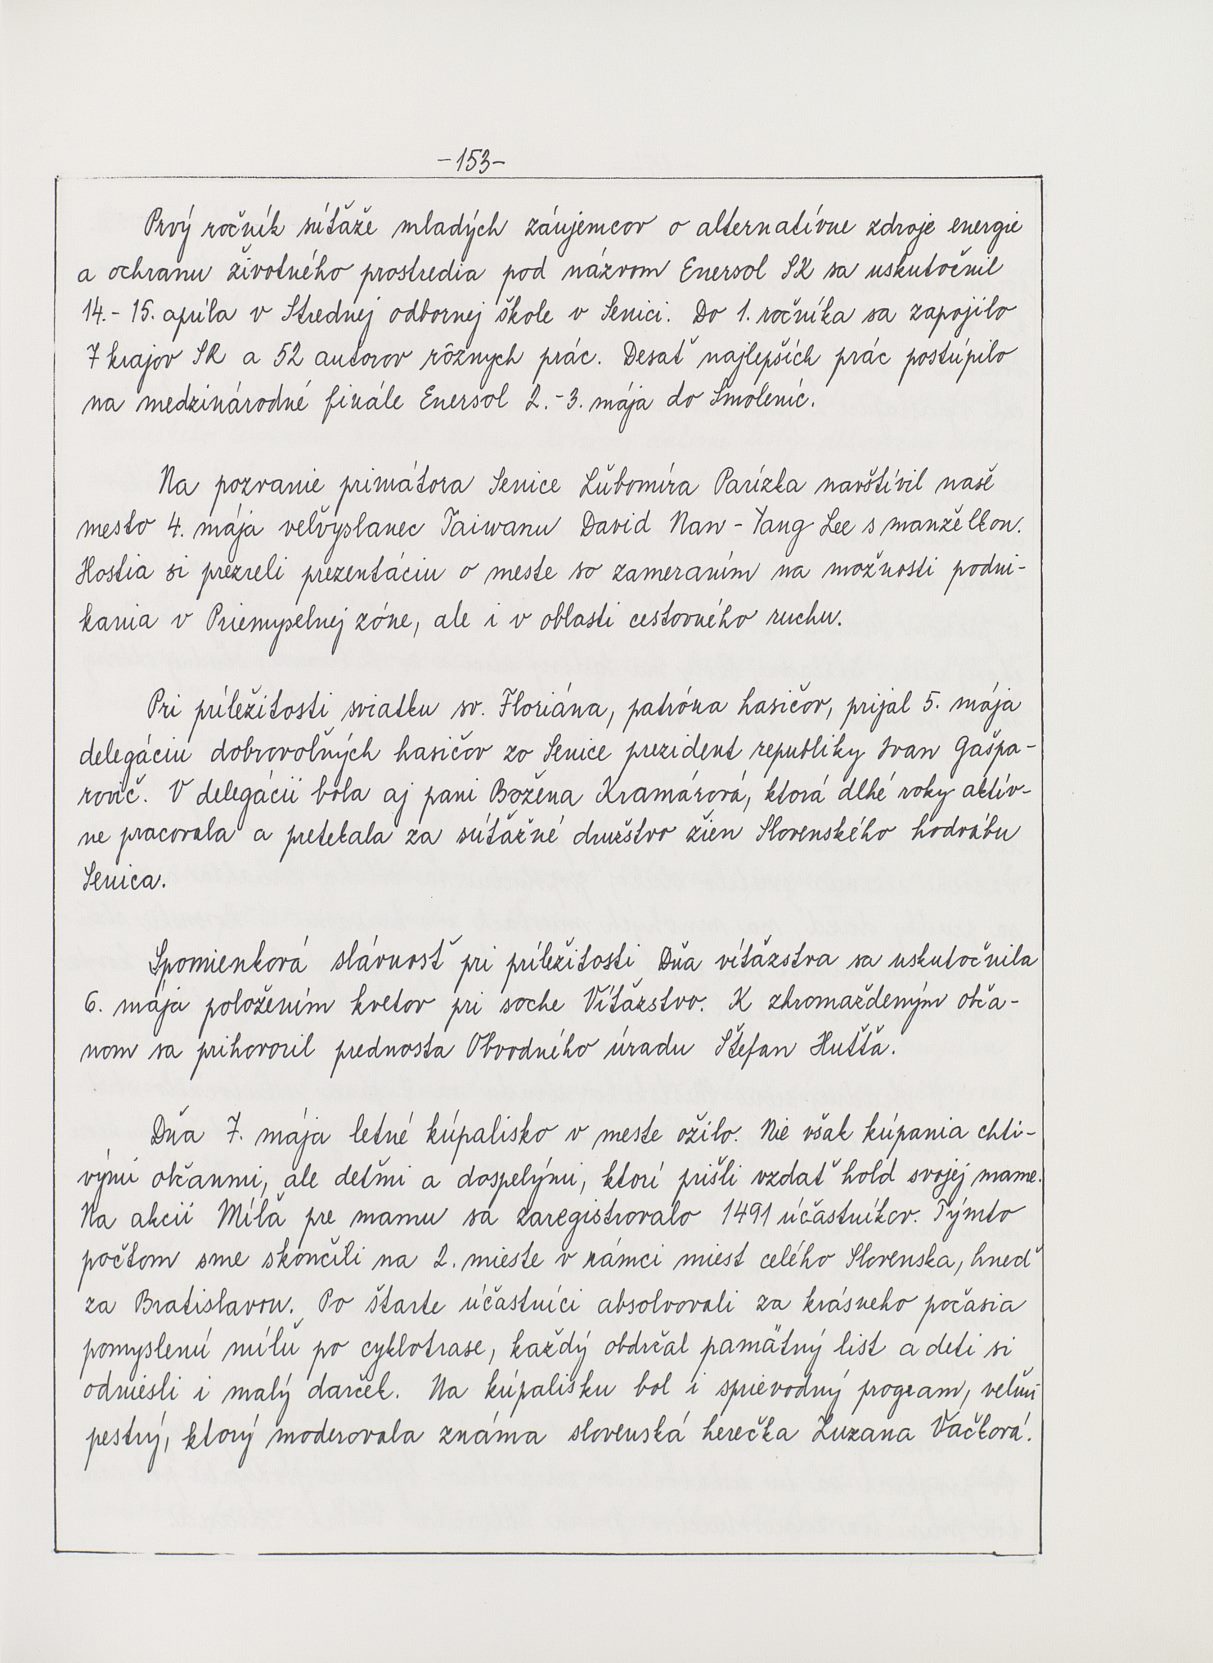 -153-
Prvý ročník súťaže mladých záujemcov o alternatívne zdroje energie
a ochranu životného prostredia pod názvom Enersol SK sa uskutočnil
14.- 15. apríla v Strednej odbornej škole v Senici. Do 1. ročníka sa zapojilo
7 krajov SR a 52 autorov rôznych prác. Desať najlepších prác postúpilo
na medzinárodné finále Enersol 2.-3. mája do Smoleníc.
Na pozvanie primátora Senice Ľubomíra Parízka navštívil naše
mesto 4. mája veľvyslanec Taiwanu David Nan - Yang Lee s manželkou.
Hostia si prezreli prezentáciu o meste so zameraním na možnosti podni-
kania v Priemyselnej zóne, ale i v oblasti cestovného ruchu.
Pri príležitosti sviatku sv. Floriána, patróna hasičov, prijal 5. mája
delegáciu dobrovoľných hasičov zo Senice prezident republiky Ivan Gašpa-
rovič. V delegácii bola aj pani Božena Kramárová, ktorá dlhé roky aktív-
ne pracovala a pretekala za súťažné družstvo žien Slovenského hodvábu
Senica.
Spomienková slávnosť pri príležitosti Dňa víťazstva sa uskutočnila
6. mája položením kvetov pri soche Víťazstvo. K zhromaždeným obča-
nom sa prihovoril prednosta Obvodného úradu Štefan Hutťa.
Dňa 7. mája letné kúpalisko v meste ožilo. Nie však kúpania chti-
vými občanmi, ale deťmi a dospelými, ktorí prišli vzdať hold svojej mame.
Na akcii Míľa pre mamu sa zaregistrovalo 1491 účastníkov. Týmto
počtom sme skončili na 2. mieste v rámci miest celého Slovenska, hneď
za Bratislavou. Po štarte účastníci absolvovali za krásneho počasia
pomyslenú míľu po cyklotrase, každý obdržal pamätný list a deti si
odniesli i malý darček. Na kúpalisku bol i sprievodný program, veľmi
pestrý, ktorý moderovala známa slovenská herečka Zuzana Vačková.